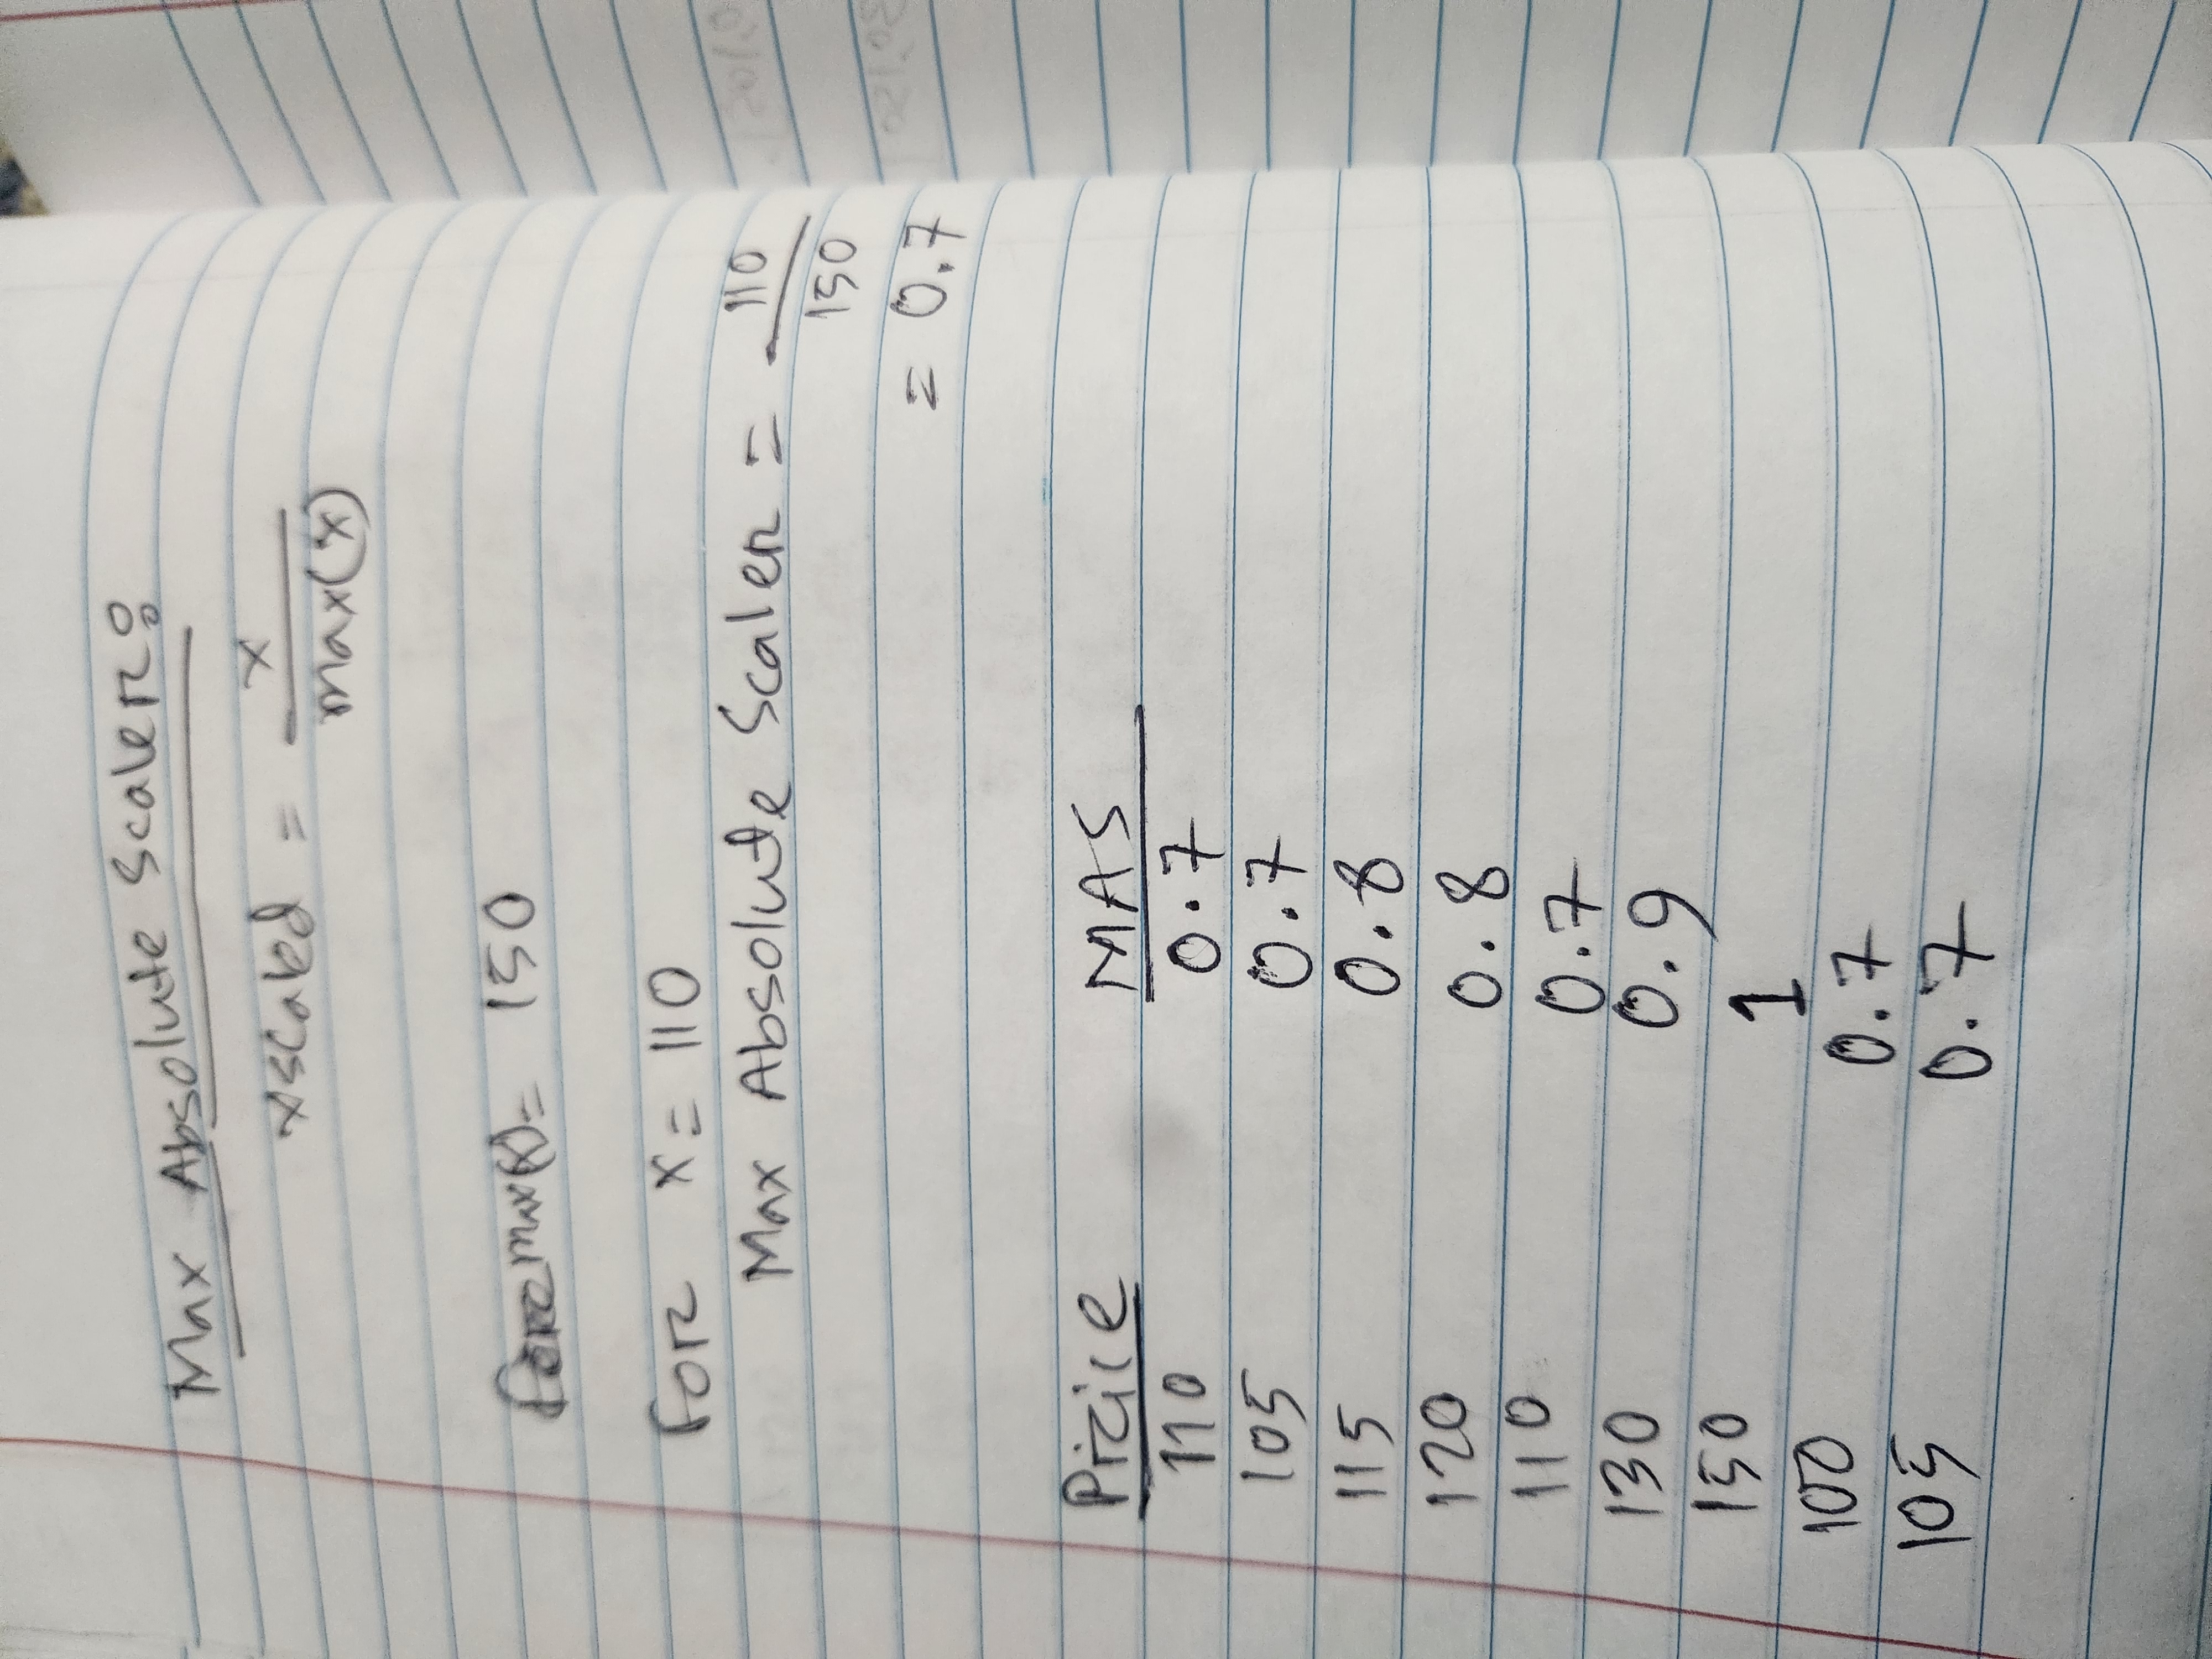 Max Absolute Scaler:
xscaled = x / max(x)
max(x) = 150
For x = 110
Max Absolute Scaler = 110 / 150
= 0.7
Price MAS
110 0.7
105 0.7
115 0.8
120 0.8
110 0.7
130 0.9
150 1
100 0.7
105 0.7